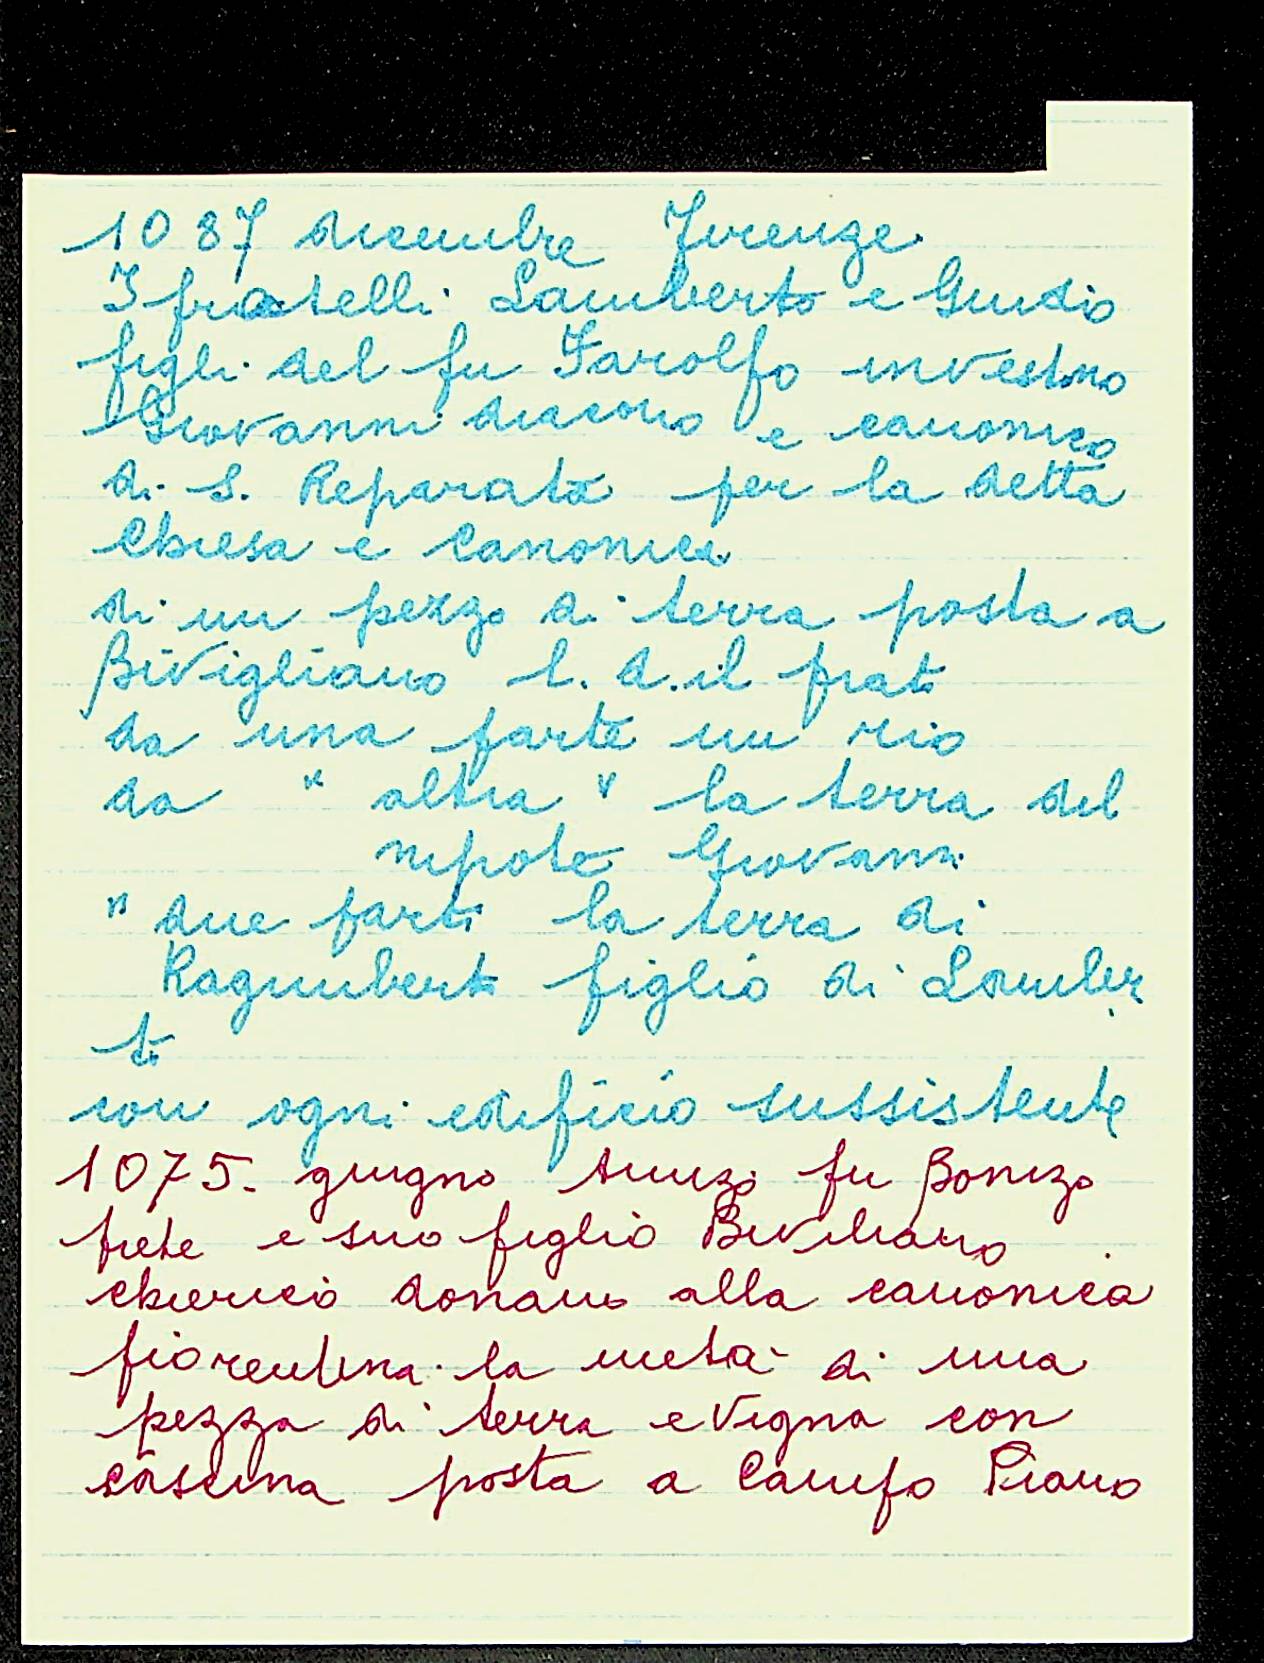 1087 dicembre Firenze
I fratelli Lamberto e Guido
figli del fu Farolfo investono
Giovanni diacono e canonico
di S. Reparata per la detta
Chiesa e Canonica
di un pezzo di terra posta a
Bivigliano l. d. il prato
da una parte un rio
da " altra " la terra del
nipote Giovanni
" due parti la terra di
Ragimberto figlio di Lamber
to
con ogni edificio sussistente
1075. giugno fu Bonizo
prete e suo figlio Biviliano
chierico donano alla canonica
fiorentina la metà di una
pezza di terra e vigna con
cascina posta a Campo Piano